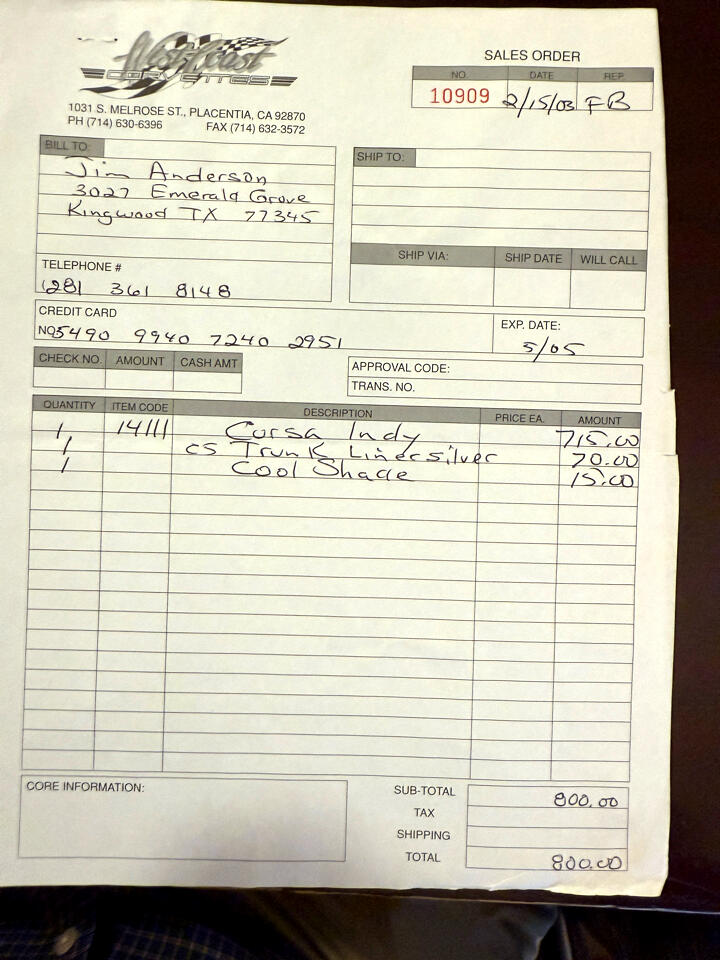 West Coast
CORVETTES
1031 S. MELROSE ST., PLACENTIA, CA 92870
PH (714) 630-6396 FAX (714) 632-3572
SALES ORDER
NO. DATE REP.
10909 2/15/03 FB
BILL TO:
Jim Anderson
3027 Emerald Grove
Kingwood TX 77345
TELEPHONE #
(281 361 8148
SHIP TO:
SHIP VIA: SHIP DATE WILL CALL
CREDIT CARD
NO. 5490 9940 7240 2951
EXP. DATE:
5/05
CHECK NO. AMOUNT CASH AMT
APPROVAL CODE:
TRANS. NO.
QUANTITY ITEM CODE DESCRIPTION PRICE EA. AMOUNT
1 14111 Corsa Indy 715.00
1 C5 Trunk Liner silver 70.00
1 Cool Shade 15.00
CORE INFORMATION:
SUB-TOTAL 800.00
TAX
SHIPPING
TOTAL 800.00